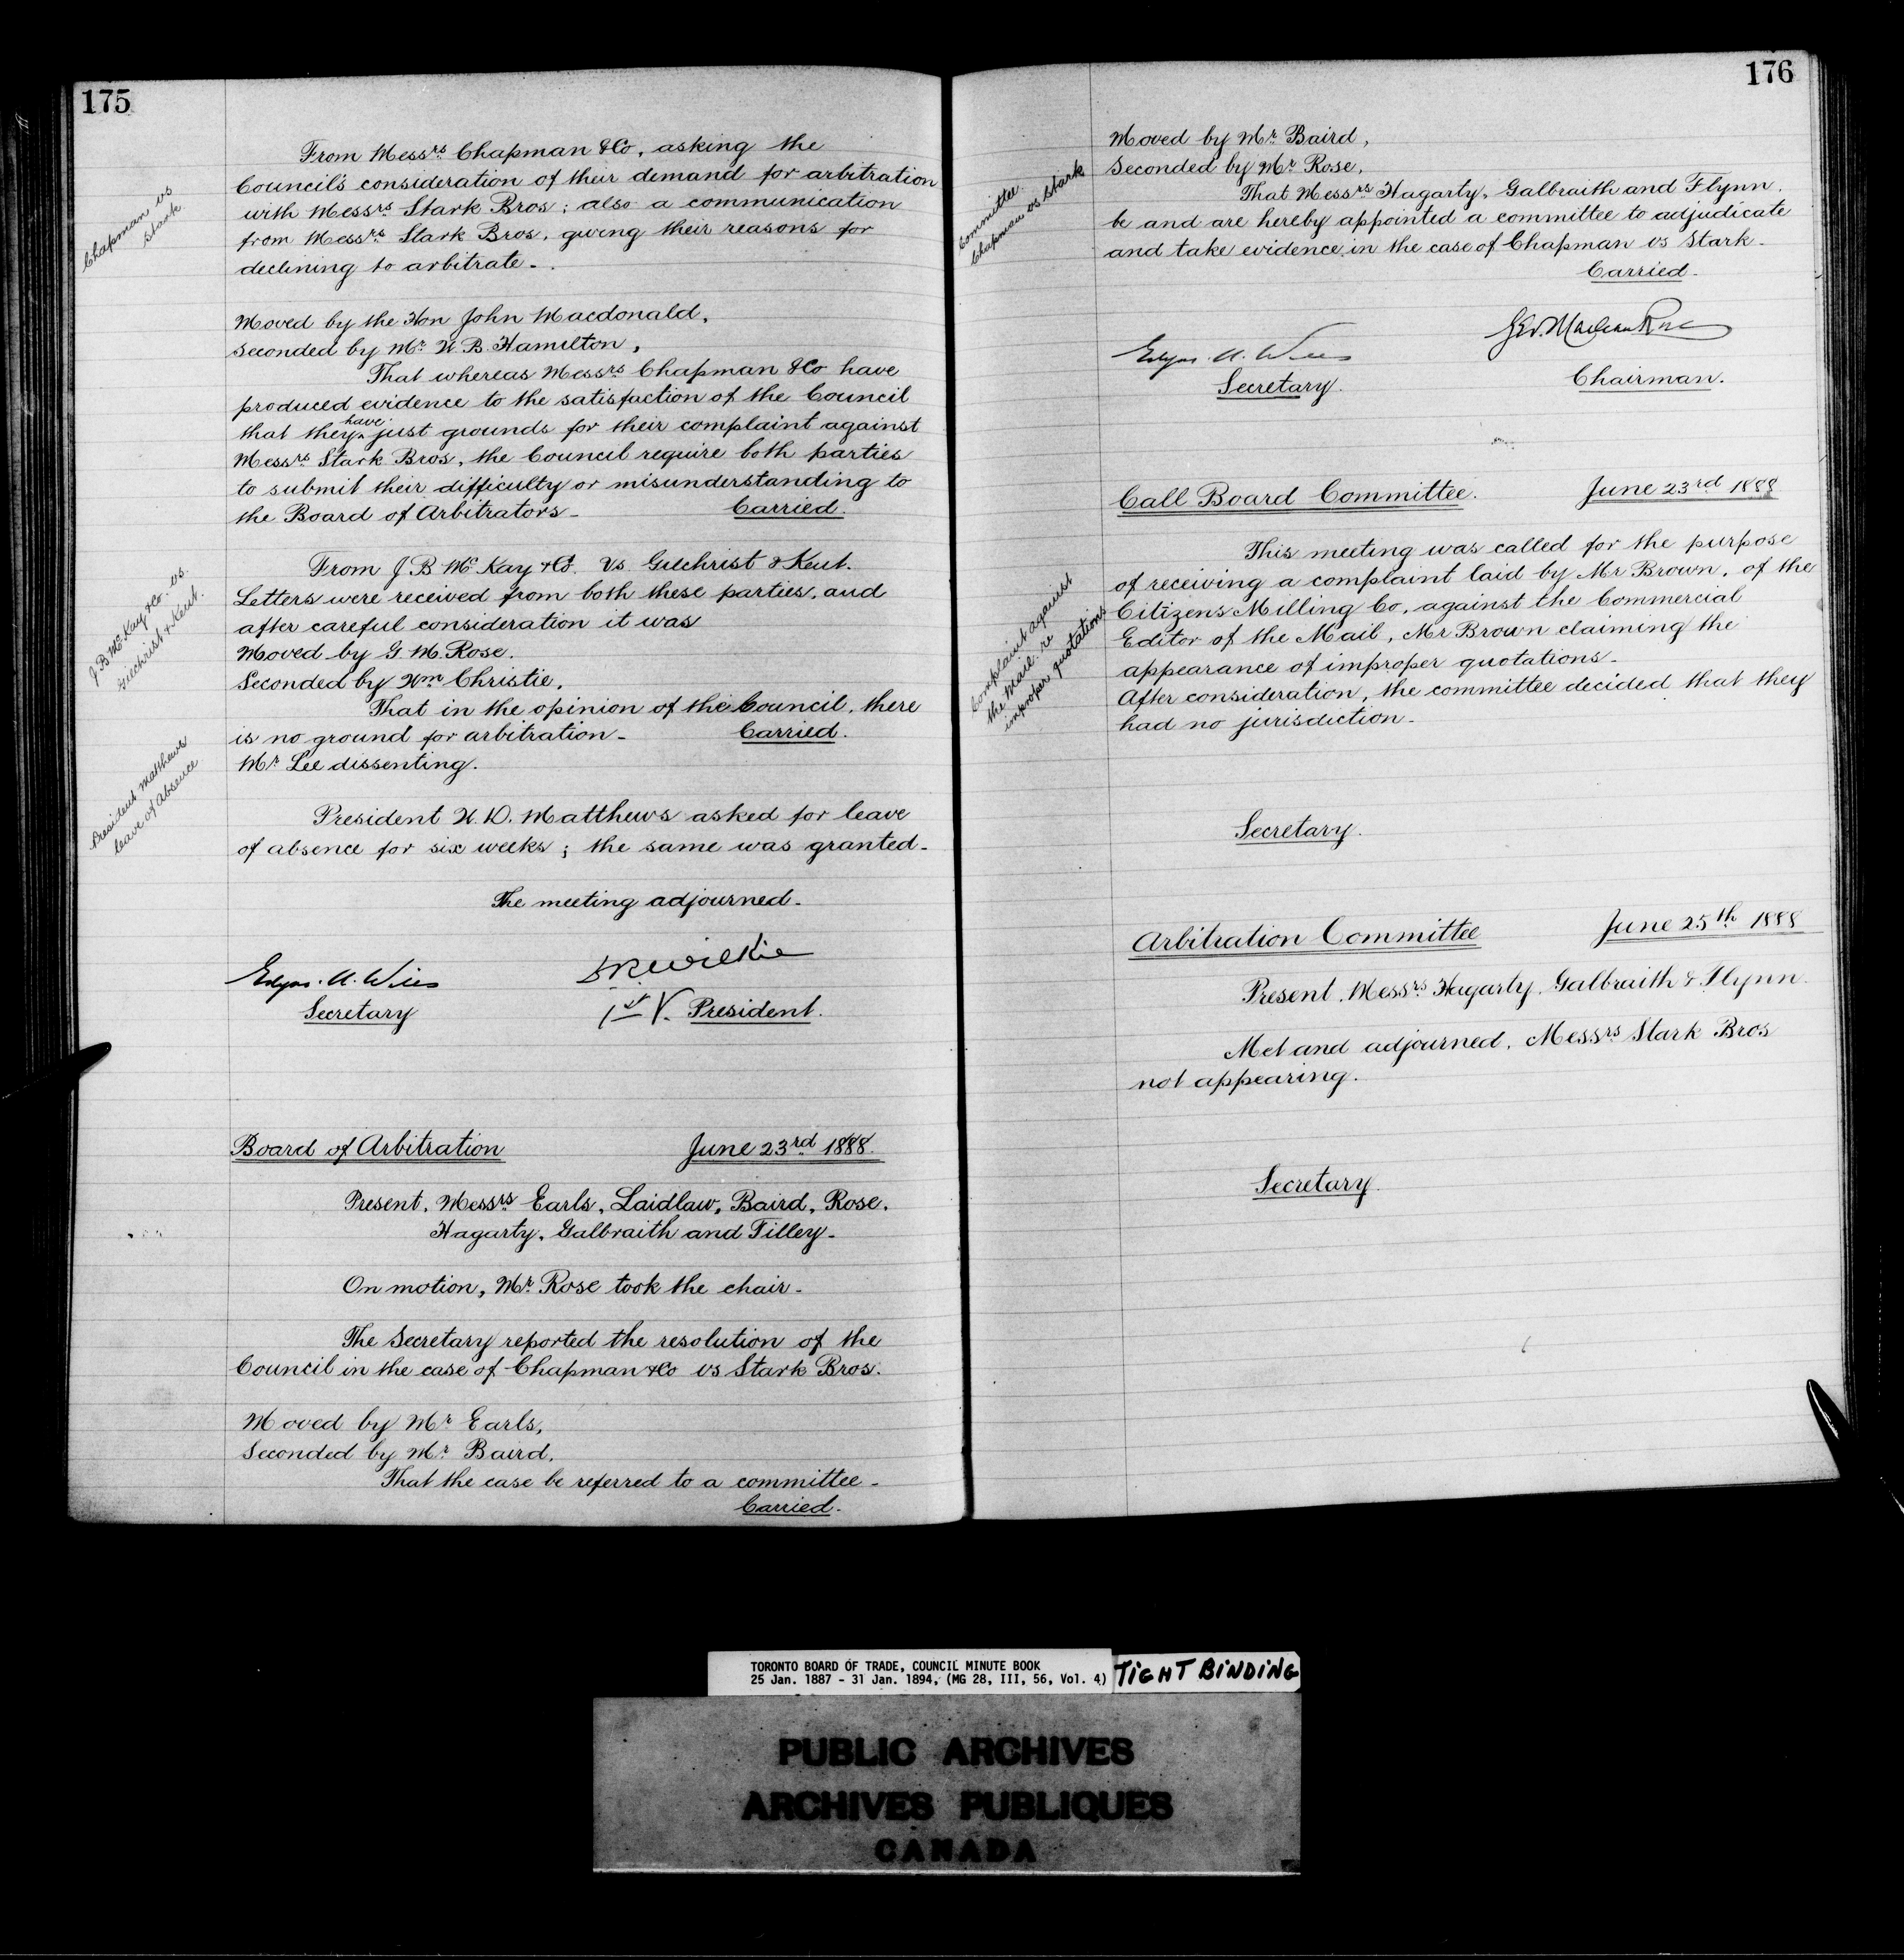 175
Chapman vs
Stark
From Messrs Chapman & Co, asking the
Council's consideration of their demand for arbitration
with Messrs Stark Bros; also a communication
from Messrs Stark Bros, giving their reasons for
declining to arbitrate.
Moved by the Hon John Macdonald,
Seconded by Mr W. B. Hamilton,
That whereas Messrs Chapman & Co have
produced evidence to the satisfaction of the Council
that they have just grounds for their complaint against
Messrs Stark Bros, the Council require both parties
to submit their difficulty or misunderstanding to
the Board of Arbitrators - Carried.
J B McKay & Co. vs.
Gilchrist & Kent.
From J B McKay & Co. vs Gilchrist & Kent.
Letters were received from both these parties, and
after careful consideration it was
Moved by G. M. Rose.
Seconded by Wm Christie,
That in the opinion of the Council, there
is no ground for arbitration - Carried.
Mr Lee dissenting.
President Matthews
leave of Absence
President W. D. Matthews asked for leave
of absence for six weeks; the same was granted -
The meeting adjourned -
Edgar A. Wills
Secretary
D R Wilkie
1st V. President.
Board of Arbitration June 23rd 1888.
Present, Messrs Earls, Laidlaw, Baird, Rose,
Hagarty, Galbraith and Tilley -
On motion, Mr Rose took the chair -
The Secretary reported the resolution of the
Council in the case of Chapman & Co vs Stark Bros.
Moved by Mr Earls,
Seconded by Mr Baird,
That the case be referred to a committee -
Carried -
176
Committee.
Chapman vs Stark
Moved by Mr Baird,
Seconded by Mr Rose,
That Messrs Hagarty, Galbraith and Flynn.
be and are hereby appointed a committee to adjudicate
and take evidence in the case of Chapman vs Stark -
Carried -
Edgar A. Wills
Secretary.
Geo. Maclean Rose
Chairman.
Call Board Committee. June 23rd 1888
Complaint against
the Mail re
improper quotations
This meeting was called for the purpose
of receiving a complaint laid by Mr Brown, of the
Citizens Milling Co, against the Commercial
Editor of the Mail, Mr Brown claiming the
appearance of improper quotations -
After consideration, the committee decided that they
had no jurisdiction -
Secretary.
Arbitration Committee June 25th 1888
Present, Messrs Hagarty, Galbraith & Flynn.
Met and adjourned, Messrs Stark Bros
not appearing.
Secretary.
TORONTO BOARD OF TRADE, COUNCIL MINUTE BOOK
25 Jan. 1887 - 31 Jan. 1894, (MG 28, III, 56, Vol. 4)
TIGHT BINDING
PUBLIC ARCHIVES
ARCHIVES PUBLIQUES
CANADA